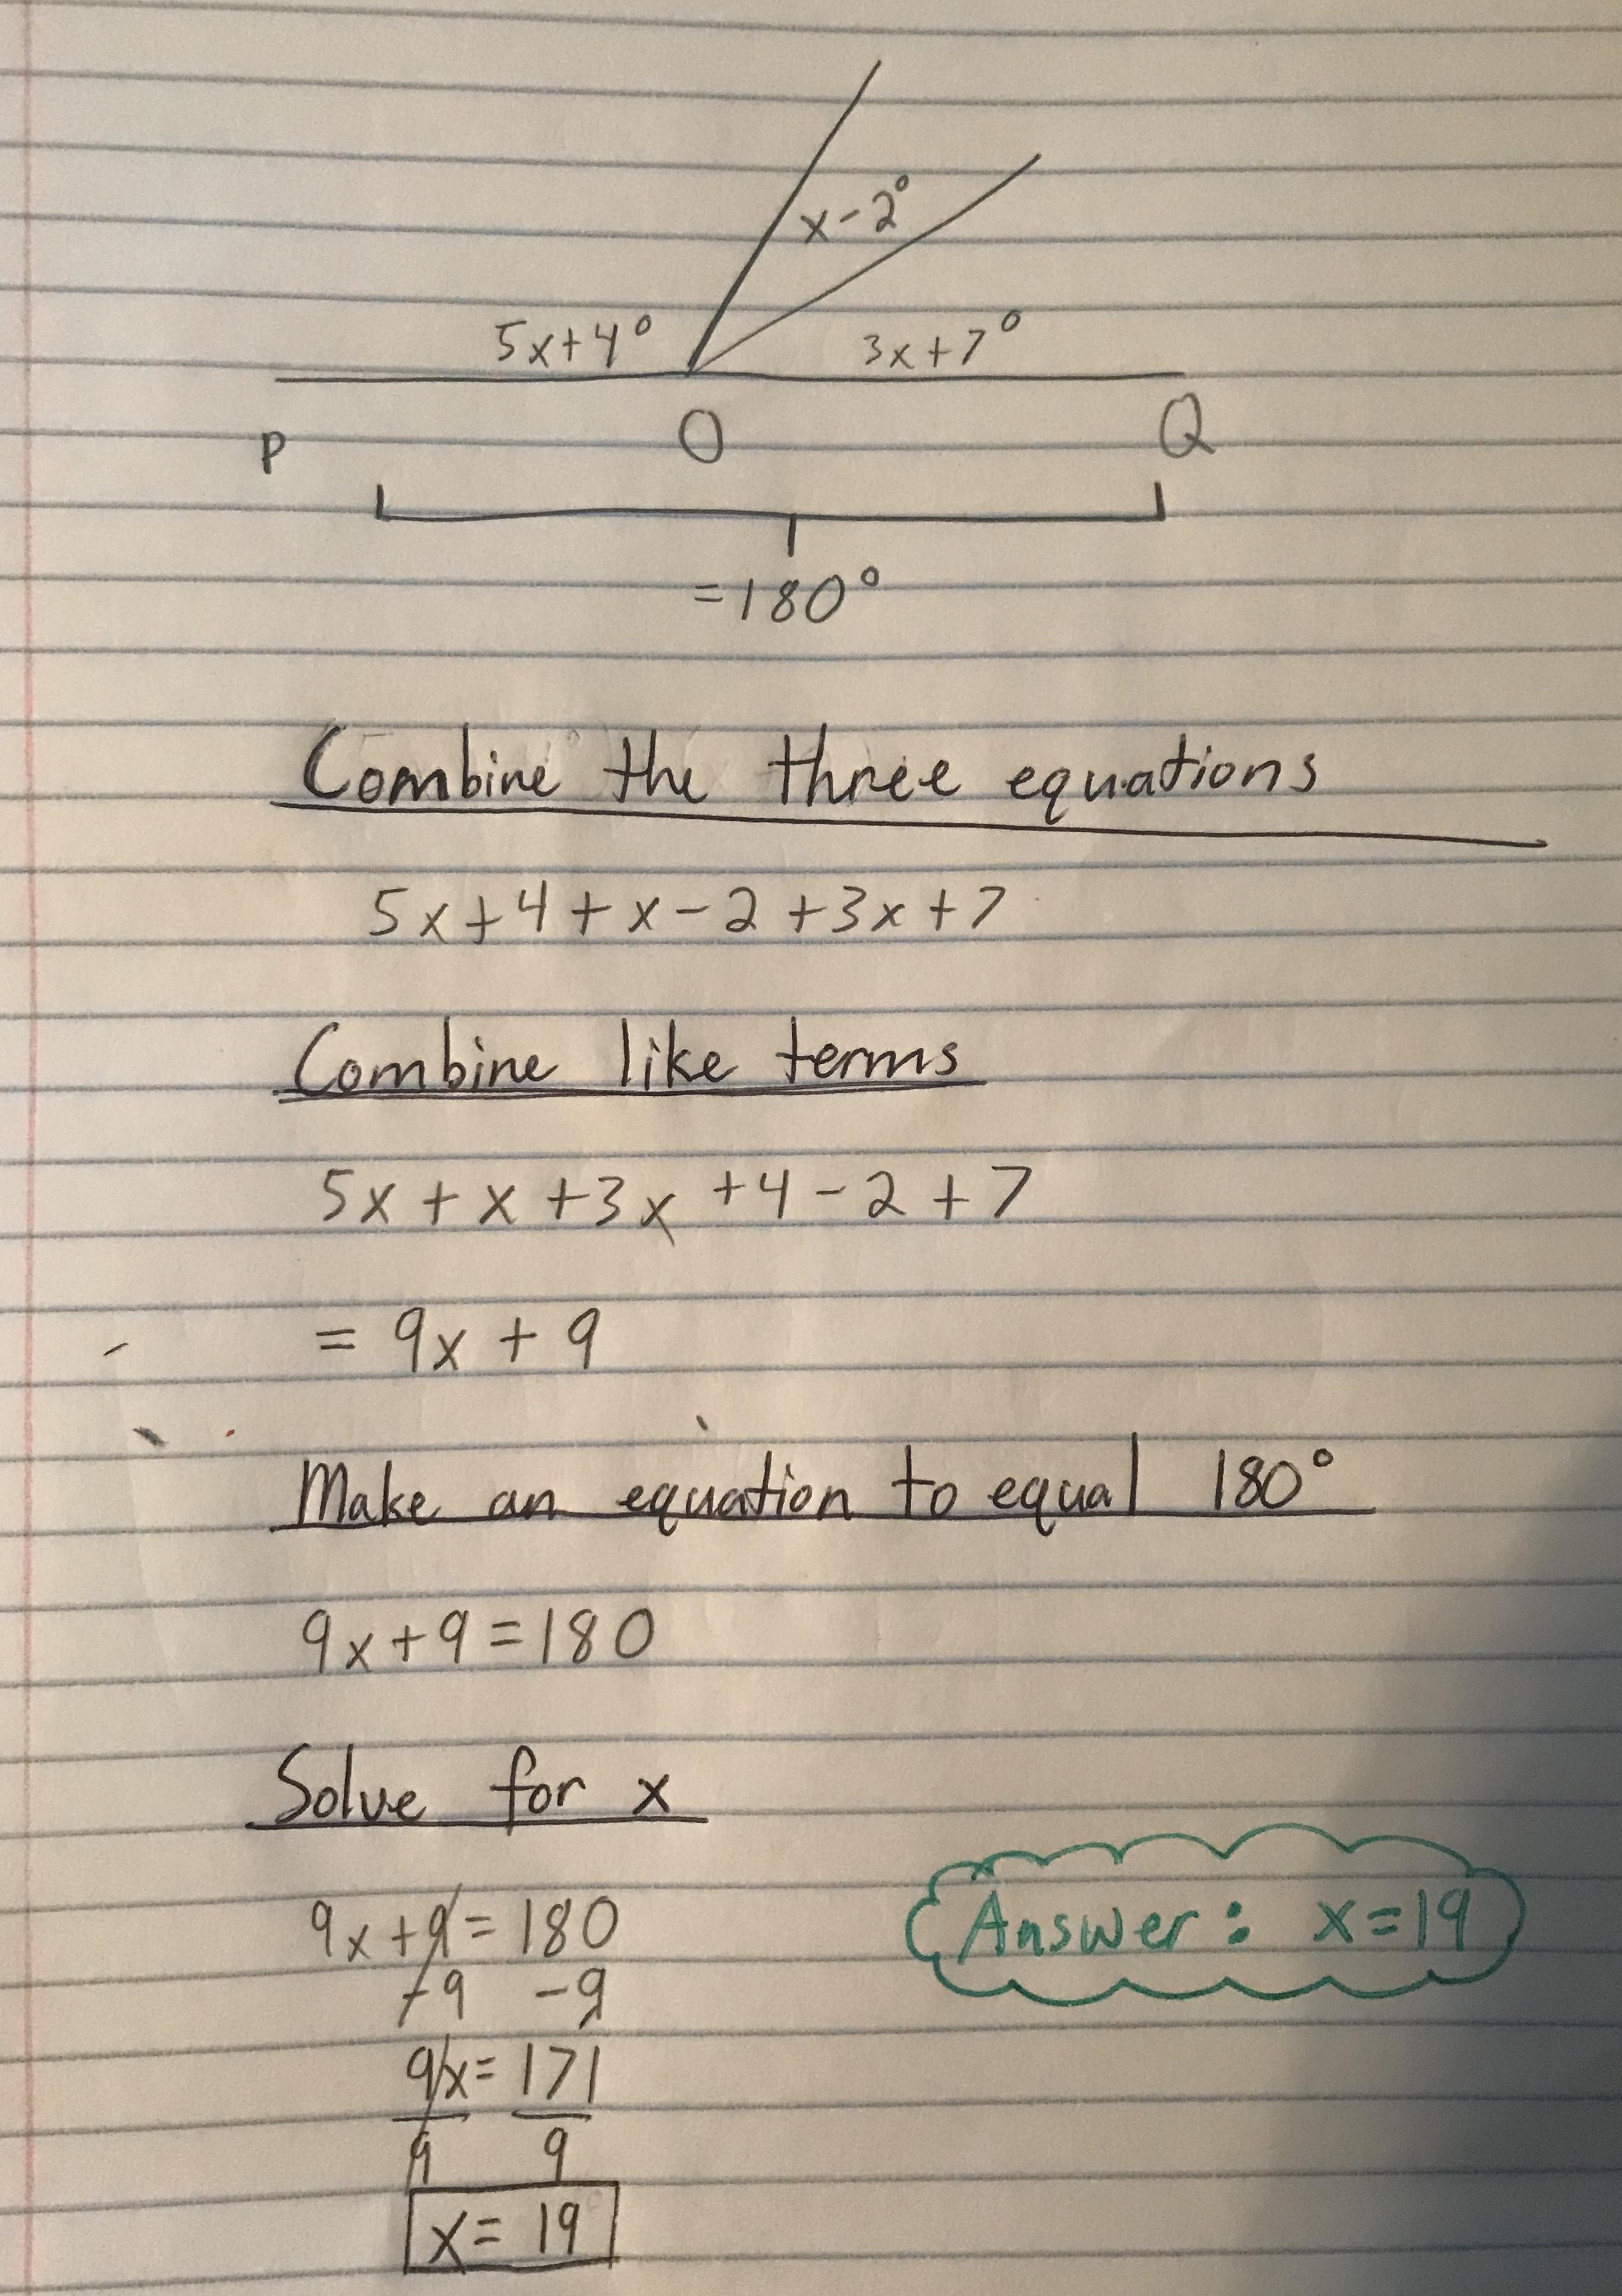 x-2°
5x+4° 3x+7°
P O Q
=180°
Combine the three equations
5x+4+x-2+3x+7
Combine like terms
5x+x+3x+4-2+7
= 9x+9
Make an equation to equal 180°
9x+9=180
Solve for x
9x+9=180
-9 -9
9x=171
9 9
x=19
Answer: x=19